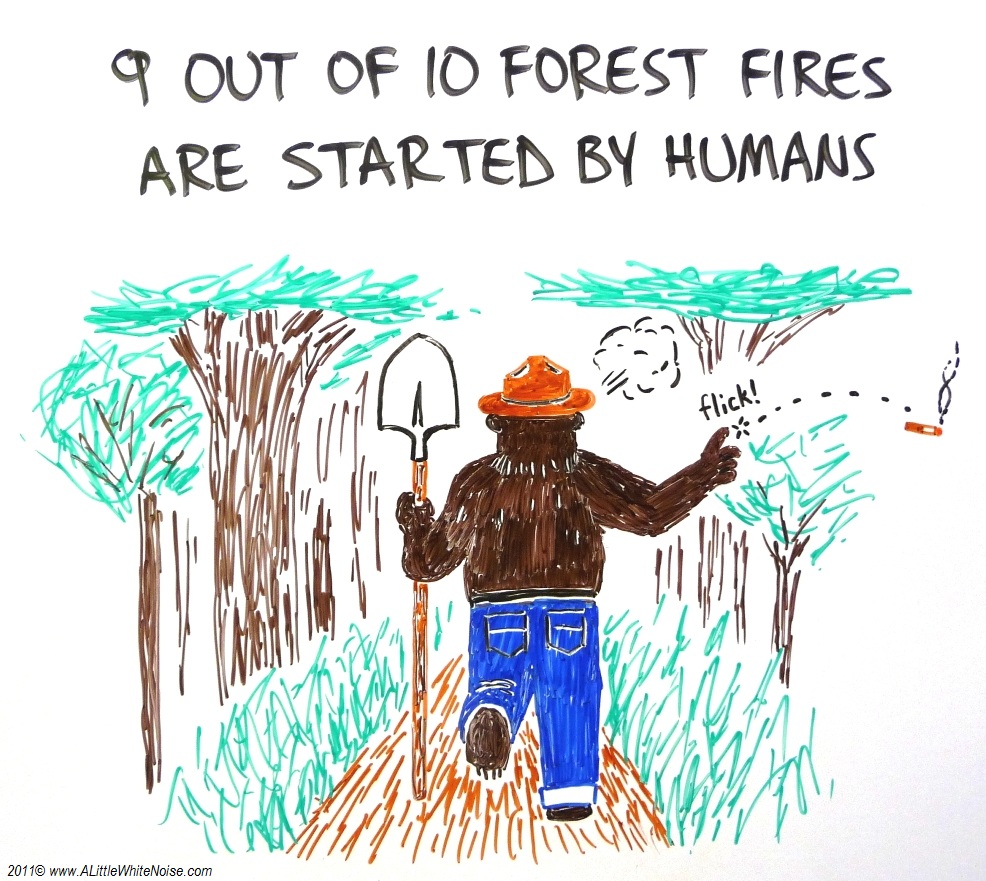 9 OUT OF 10 FOREST FIRES
ARE STARTED BY HUMANS
flick!
2011© www.ALittleWhiteNoise.com